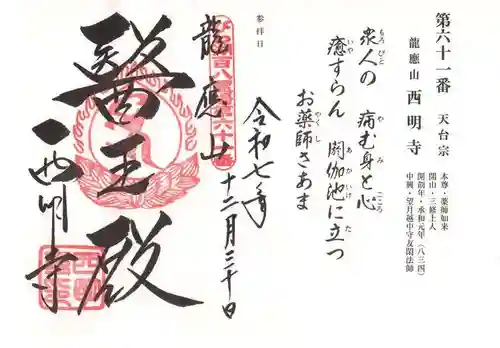 第六十一番 天台宗
龍應山 西明寺
本尊・薬師如来
開山・三修上人
開創年・承和元年(八三四)
中興・望月越中守友閑法師
衆人の 病む身と心
もろびと やみ こころ
癒すらん 閼伽池に立つ
いや あかいけ た
お薬師さあま
やくし
参拝日
令和七年
十二月三十日
龍應山
醫王殿
西明寺